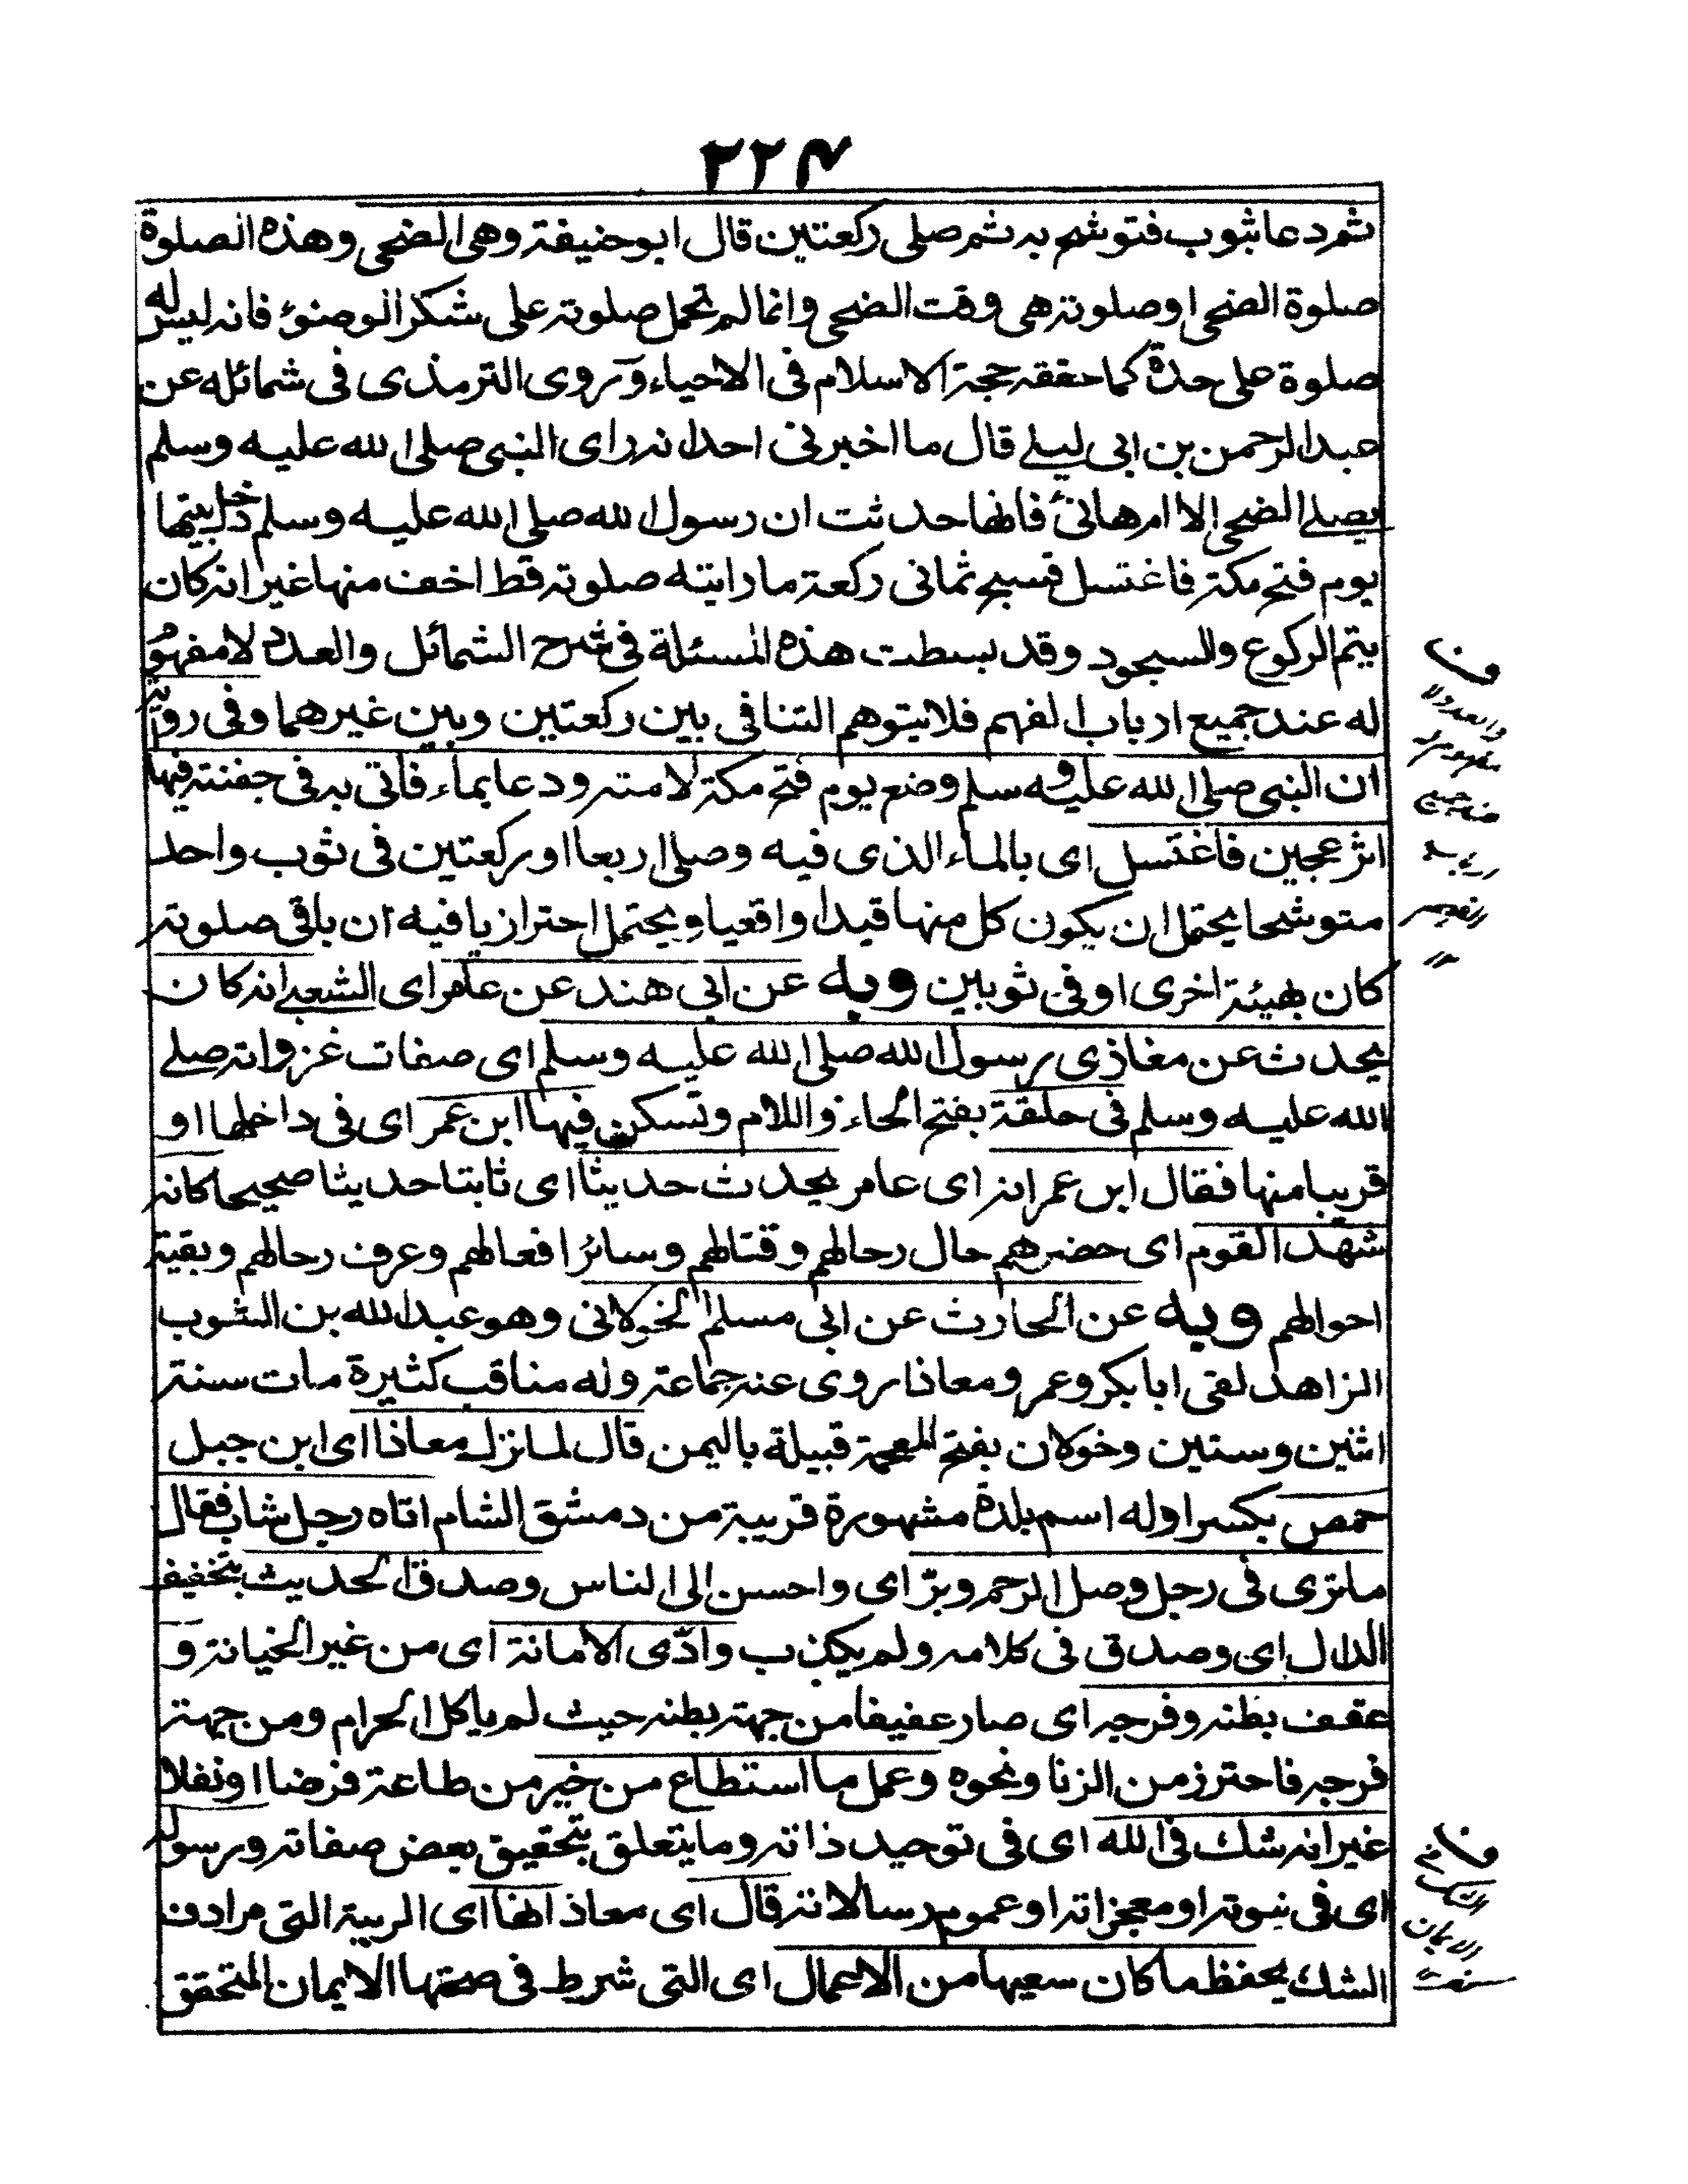 ٢٢٤
ثم دعا بثوب فتوشح به ثم صلى ركعتين قال ابو حنيفة وهى الضحى وهذه الصلوة
صلوة الضحى او صلوته هى وقت الضحى وانما لم تحمل صلوته على شكر الوضوء فانه ليس له
صلوة على حدة كما حققه حجة الاسلام فى الاحياء وروى الترمذى فى شمائله عن
عبد الرحمن بن ابى ليلے قال ما اخبرنى احد انه راى النبى صلى الله عليه وسلم
يصلے الضحى الا ام هانئ فانها حدثت ان رسول الله صلى الله عليه وسلم دخل بيتها
يوم فتح مكة فاغتسل فسبح ثمانى ركعة ما رايته صلوته قط اخف منها غير انه كان
يتم الركوع والسجود وقد بسطت هذه المسئلة فى شرح الشمائل والعدد لا مفهوم
له عند جميع ارباب الفهم فلا يتوهم التنافى بين ركعتين وبين غيرهما وفى رواية
ان النبى صلى الله عليه وسلم وضع يوم فتح مكة لامته ودعا بماء فاتى به فى جفنة فيها
اثر عجين فاغتسل اى بالماء الذى فيه وصلى اربعا او ركعتين فى ثوب واحد
متوشحا يحتمل ان يكون كل منها قيدا واقعيا ويحتمل احترازيا فيه ان باقى صلوته
كان بهيئة اخرى او فى ثوبين وبه عن ابى هند عن عامر اى الشعبے انه كان
يحدث عن مغازى رسول الله صلى الله عليه وسلم اى صفات غزواته صلے
الله عليه وسلم فى حلقة بفتح الحاء واللام وتسكن فيها ابن عمر اى فى داخلها او
قريبا منها فقال ابن عمر انه اى عامر يحدث حديثا اى ثابتا حديثا صحيحا كانه
شهد القوم اى حضرهم حال رحالهم وقتالهم وسائر افعالهم وعرف رحالهم وبقية
احوالهم وبه عن الحارث عن ابى مسلم الخولانى وهو عبد الله بن الثوب
الزاهد لقى ابا بكر وعمر ومعاذا روى عنه جماعة وله مناقب كثيرة مات سنة
اثنين وستين وخولان بفتح المعجمة قبيلة باليمن قال لما نزل معاذا اى ابن جبل
حمص بكسر اوله اسم بلدة مشهورة قريبة من دمشق الشام اتاه رجل شاب فقال
ما ترى فى رجل وصل الرحم وبرّ اى واحسن الى الناس وصدق الحديث بتخفيف
الدال اى وصدق فى كلامه ولم يكذب وادّى الامانة اى من غير الخيانة و
عفف بطنه وفرجه اى صار عفيفا من جهة بطنه حيث لم ياكل الحرام ومن جهة
فرجه فاحترز من الزنا ونحوه وعمل ما استطاع من خير من طاعة فرضا او نفلا
غير انه شك فى الله اى فى توحيد ذاته وما يتعلق بتحقيق بعض صفاته ورسوله
اى فى نبوته او معجزاته او عموم رسالاته قال اى معاذ انها اى الريبة التى مرادف
الشك يحفظ ما كان سعيها من الاعمال اى التى شرط فى صحتها الايمان المتحقق
ف
والعدد لا
مفهوم له
عند جميع
ارباب
الفهم
ف
الشك فى
الايمان